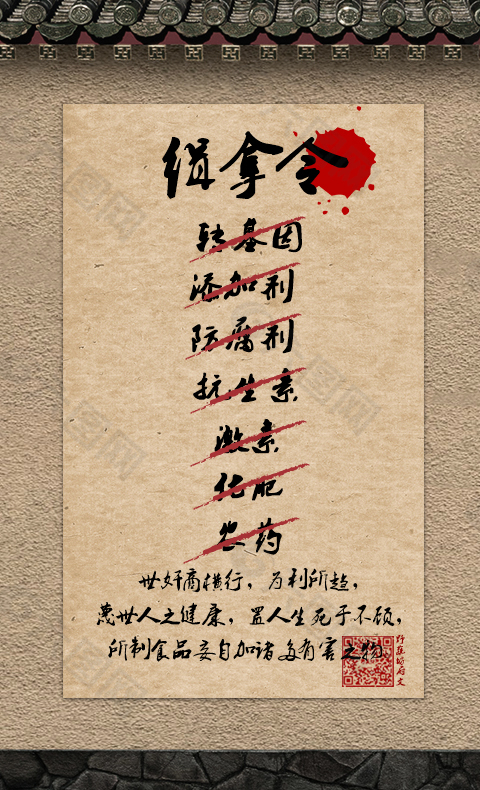 缉拿令
转基因
添加剂
防腐剂
抗生素
激素
化肥
农药
世奸商横行，为利所趋，
蔑世人之健康，置人生死于不顾，
所制食品妄自加诸多有害之物